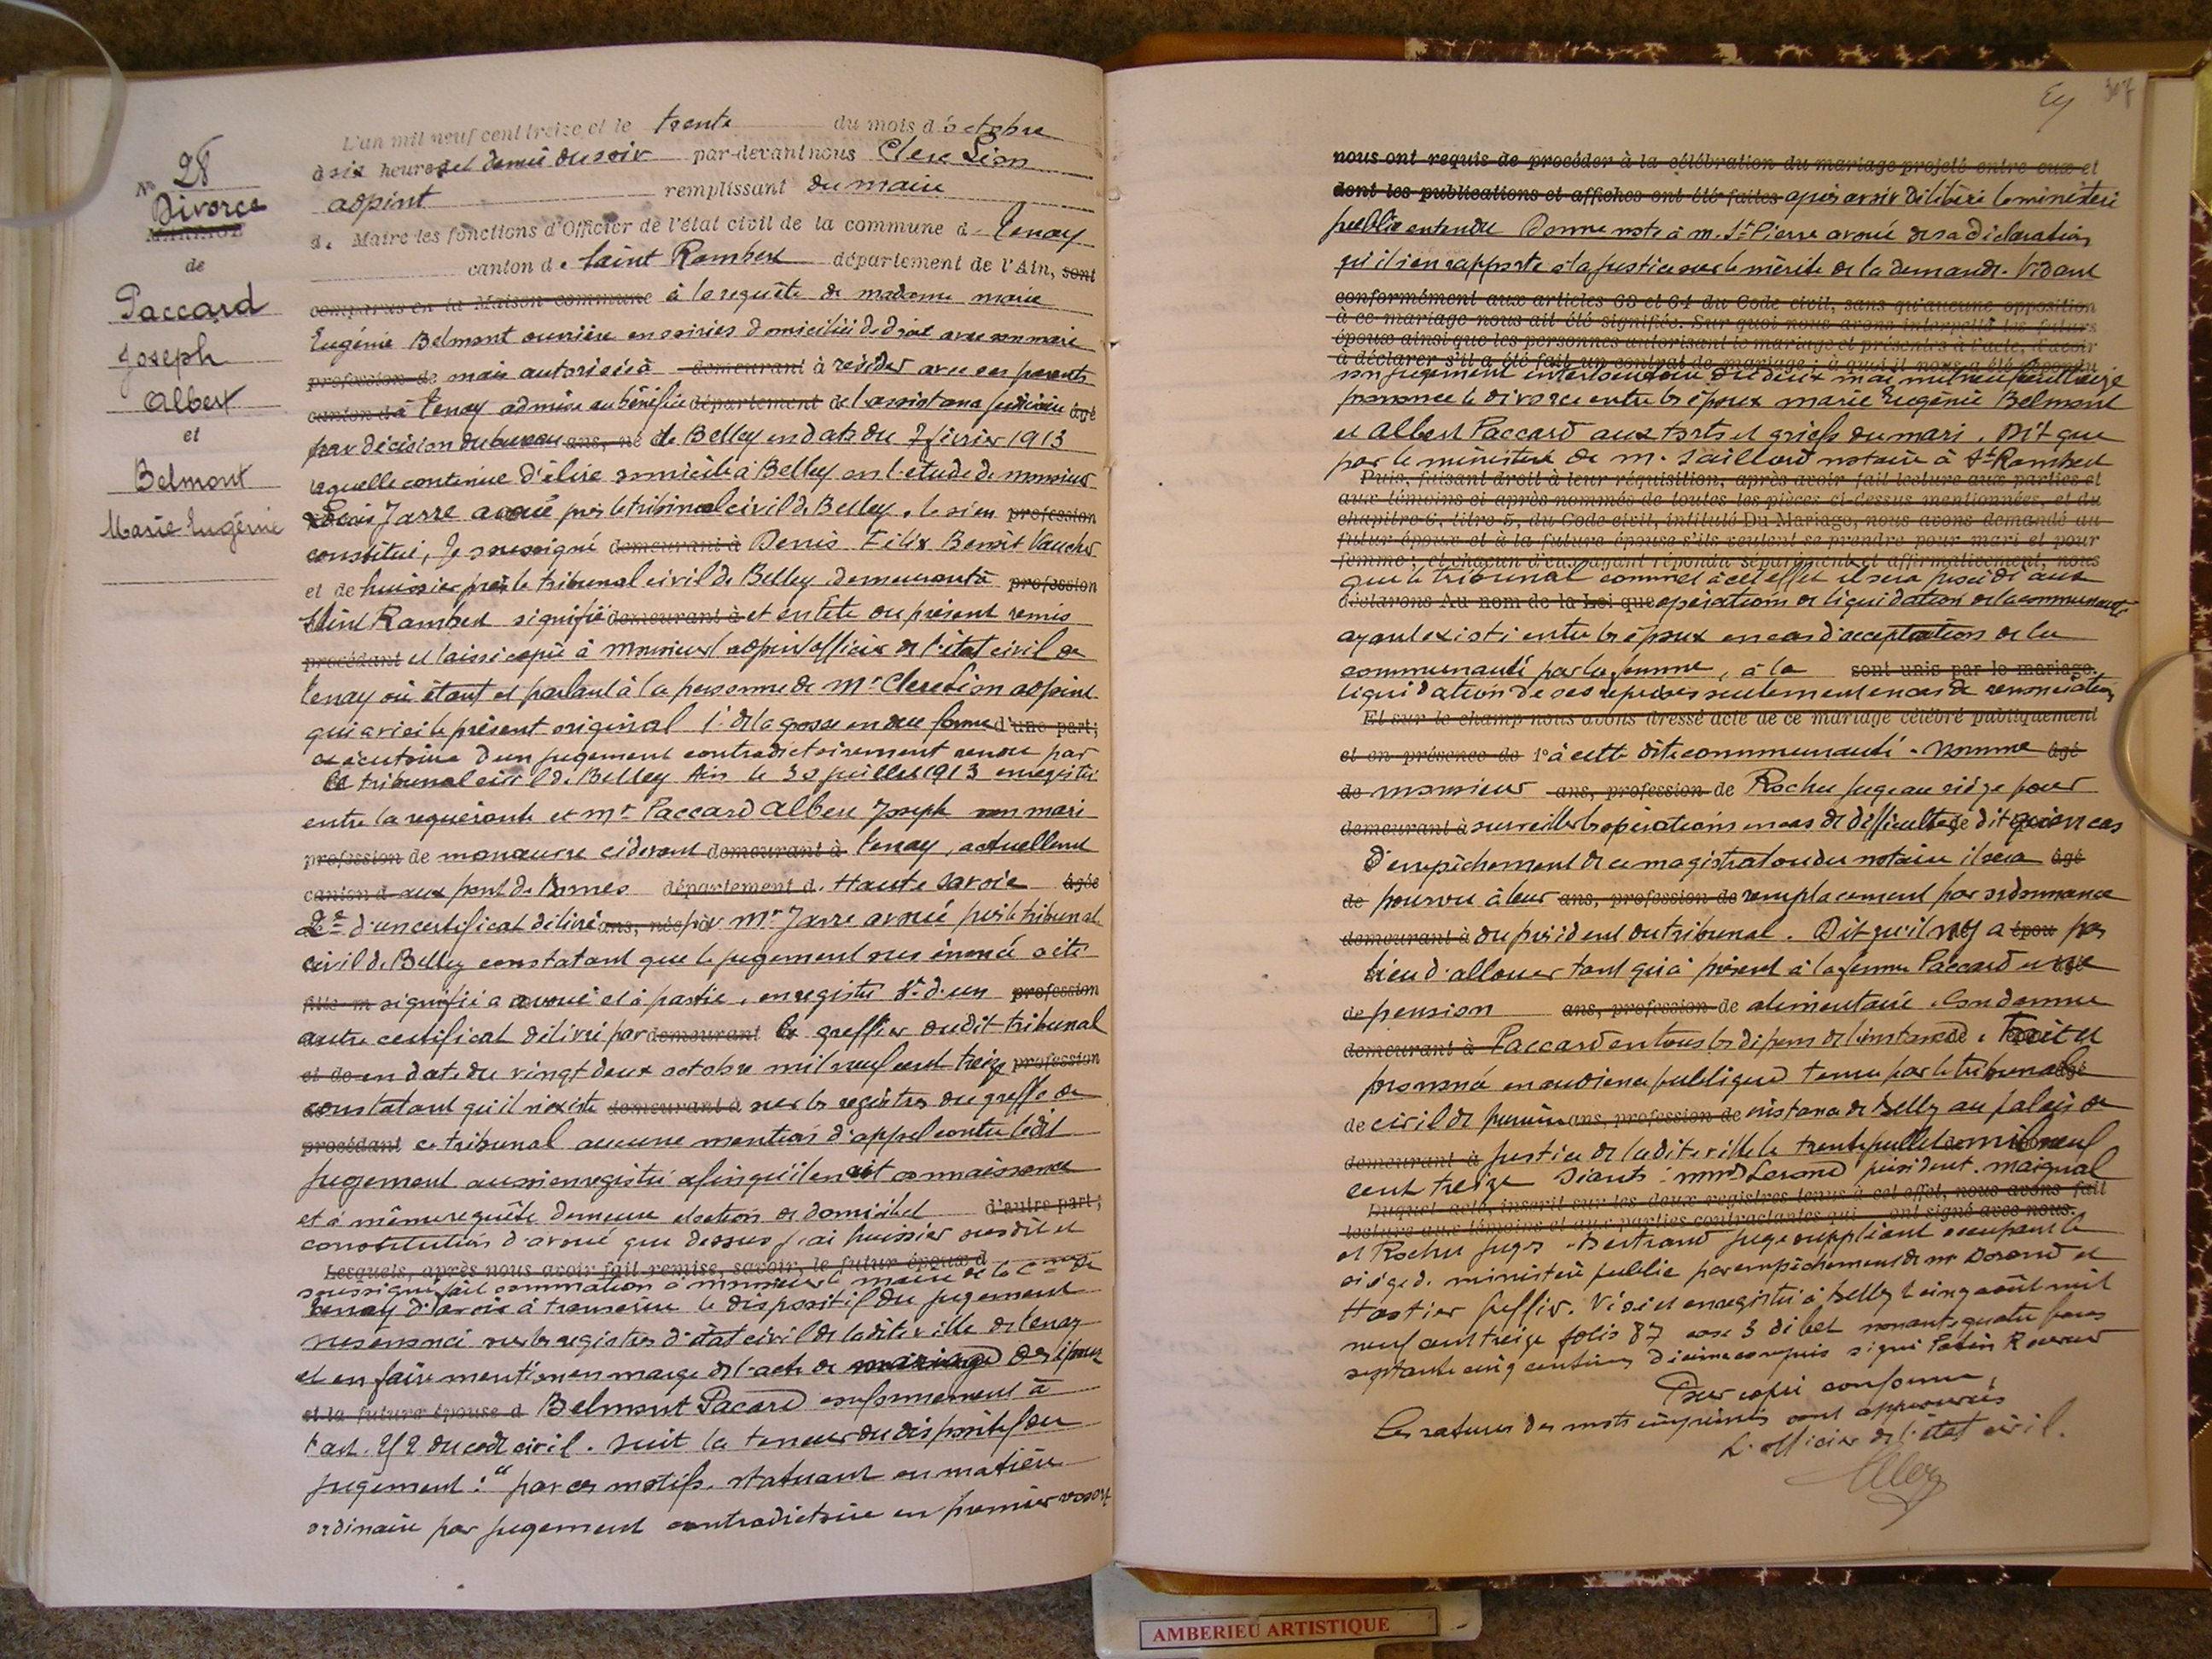 No 28
Divorce
MARIAGE
de
Paccard
Joseph
Albert
et
Belmont
Marie Eugénie
L'an mil neuf cent treize et le trente du mois d'octobre
à six heures et demie du soir par-devant nous Clerc Léon
adjoint remplissant du maire
de Maire les fonctions d'Officier de l'état civil de la commune d Tenay
canton de Saint Rambert département de l'Ain, sont
comparus en la Maison commune à la requête de madame marie
Eugénie Belmont ouvrière en soieries domiciliée de droit avec son mari
profession de mais autorisée à demeurant à résider avec ses parents
canton d à Tenay admise au bénéfice département de l'assistance judiciaire âgé
par décision du bureau ans, né de Belley en date du 7 février 1913
laquelle continue d'élire domicile à Belley en l'étude de monsieur
Jarre avoué près le tribunal civil de Belley, le sien profession
constitué, Je soussigné demeurant à Denis Félix Benoît Vaucher
et de huissier près le tribunal civil de Belley demeurant à profession
Saint Rambert signifié demeurant à et en tête du présent remis
procédant et laissé copie à monsieur l'adjoint officier de l'état civil de
Tenay où étant et parlant à la personne de Mr Clerc Léon adjoint
qui a visé le présent original 1° de la grosse en due forme d'une part;
exécutoire d'un jugement contradictoirement rendu par
le tribunal civil de Belley Ain le 30 juillet 1913 enregistré
entre la requérante et Mr Paccard Albert Joseph son mari
profession de manœuvre ci devant demeurant à Tenay, actuellement
canton d aux pont de Bornes département d. Haute Savoie âgée
2° d'un certificat délivré ans, née par Mr Jarre avoué près le tribunal
civil de Belley constatant que le jugement sus énoncé a été
fille m signifié a avoué et à partie, enregistré 3° d'un profession
autre certificat délivré par demeurant le greffier dudit tribunal
et de en date du vingt deux octobre mil neuf cent treize profession
constatant qu'il n'existe demeurant à sur les registres du greffe de
procédant ce tribunal aucune mention d'appel contre ledit
jugement aussi enregistré afin qu'il en ait connaissance
et à même requête demeure élection de domicile et d'autre part;
constitution d'avoué que dessus j'ai huissier susdit et
Lesquels, après nous avoir fait remise, savoir, le futur époux d
soussigné fait sommation à monsieur le maire de la Cne de
Tenay d'avoir à transcrire le dispositif du jugement
susénoncé sur les registres d'état civil de ladite ville de Tenay
et en faire mention en marge de l'acte de mariage des époux
et la future épouse d Belmont Pacard conformément à
l'art. 252 du code civil. Suit la teneur du dispositif du
jugement: " par ces motifs, statuant en matière
ordinaire par jugement contradictoire en premier ressort
307
nous ont requis de procéder à la célébration du mariage projeté entre eux et
dont les publications et affiches ont été faites après avoir délibéré le ministère
public entendu Donne note à m. St Pierre avoué de sa déclaration
qu'il s'en rapporte à la justice sur le mérite de la demande. Vidant
conformément aux articles 63 et 64 du Code civil, sans qu'aucune opposition
à ce mariage nous ait été signifiée. Sur quoi nous avons interpellé les futurs
époux ainsi que les personnes autorisant le mariage et présentes à l'acte, d'avoir
à déclarer s'il a été fait un contrat de mariage ; à quoi il nous a été répondu
son jugement interlocutoire du deux mai mil neuf cent treize
prononce le divorce entre les époux marie Eugénie Belmont
et Albert Paccard aux torts et griefs du mari. Dit que
par le ministère de m. Saillard notaire à St Rambert
Puis, faisant droit à leur réquisition, après avoir fait lecture aux parties et
aux témoins ci après nommés de toutes les pièces ci-dessus mentionnées, et du
chapitre 6, titre 5, du Code civil, intitulé Du Mariage, nous avons demandé au
futur époux et à la future épouse s'ils veulent se prendre pour mari et pour
femme ; et chacun d'eux ayant répondu séparément et affirmativement, nous
que le tribunal commet à cet effet il sera procédé aux
déclarons Au nom de la Loi que opérations de liquidation de la communauté
ayant existé entre les époux en cas d'acceptation de la
communauté par la femme, à la sont unis par le mariage.
liquidation de ses reprises seulement en cas de renonciation
Et sur le champ nous avons dressé acte de ce mariage célébré publiquement
et en présence de 1° à cette dite communauté. Nomme âgé
de monsieur ans, profession de Rochu juge au siège pour
demeurant à surveiller les opérations en cas de difficultés dit qu'en cas
d'empêchement de ce magistrat ou du notaire il sera âgé
de pourvu à leur ans, profession de remplacement par ordonnance
demeurant à du président du tribunal. Dit qu'il n'y a épou pas
lieu d'allouer tant qu'à présent à la femme Paccard une
de pension ans, profession de alimentaire. Condamne
demeurant à Paccard en tous les dépens de l'instance. Fait et
prononcé en audience publique tenue par le tribunal âgé
de civil de première ans, profession de instance de Belley au palais de
demeurant à justice de ladite ville le trente juillet mil neuf
cent treize Séants: mrs Lerand président. Maignal
Duquel acte, inscrit sur les deux registres tenus à cet effet, nous avons fait
lecture aux témoins et aux parties contractantes qui ont signé avec nous.
et Rochu juges. Bertrand juge suppléant occupant le
siège du ministère public par empêchement de mr Dorand et
Hostier greffier. Visé et enregistré à Belley le cinq août mil
neuf cent treize folio 87 case 3 débet nonante quatre francs
septante cinq centimes décimes compris signé Receveur
Pour copie conforme,
Les ratures des mots imprimés sont approuvées
L'officier de l'état civil.
AMBERIEU ARTISTIQUE